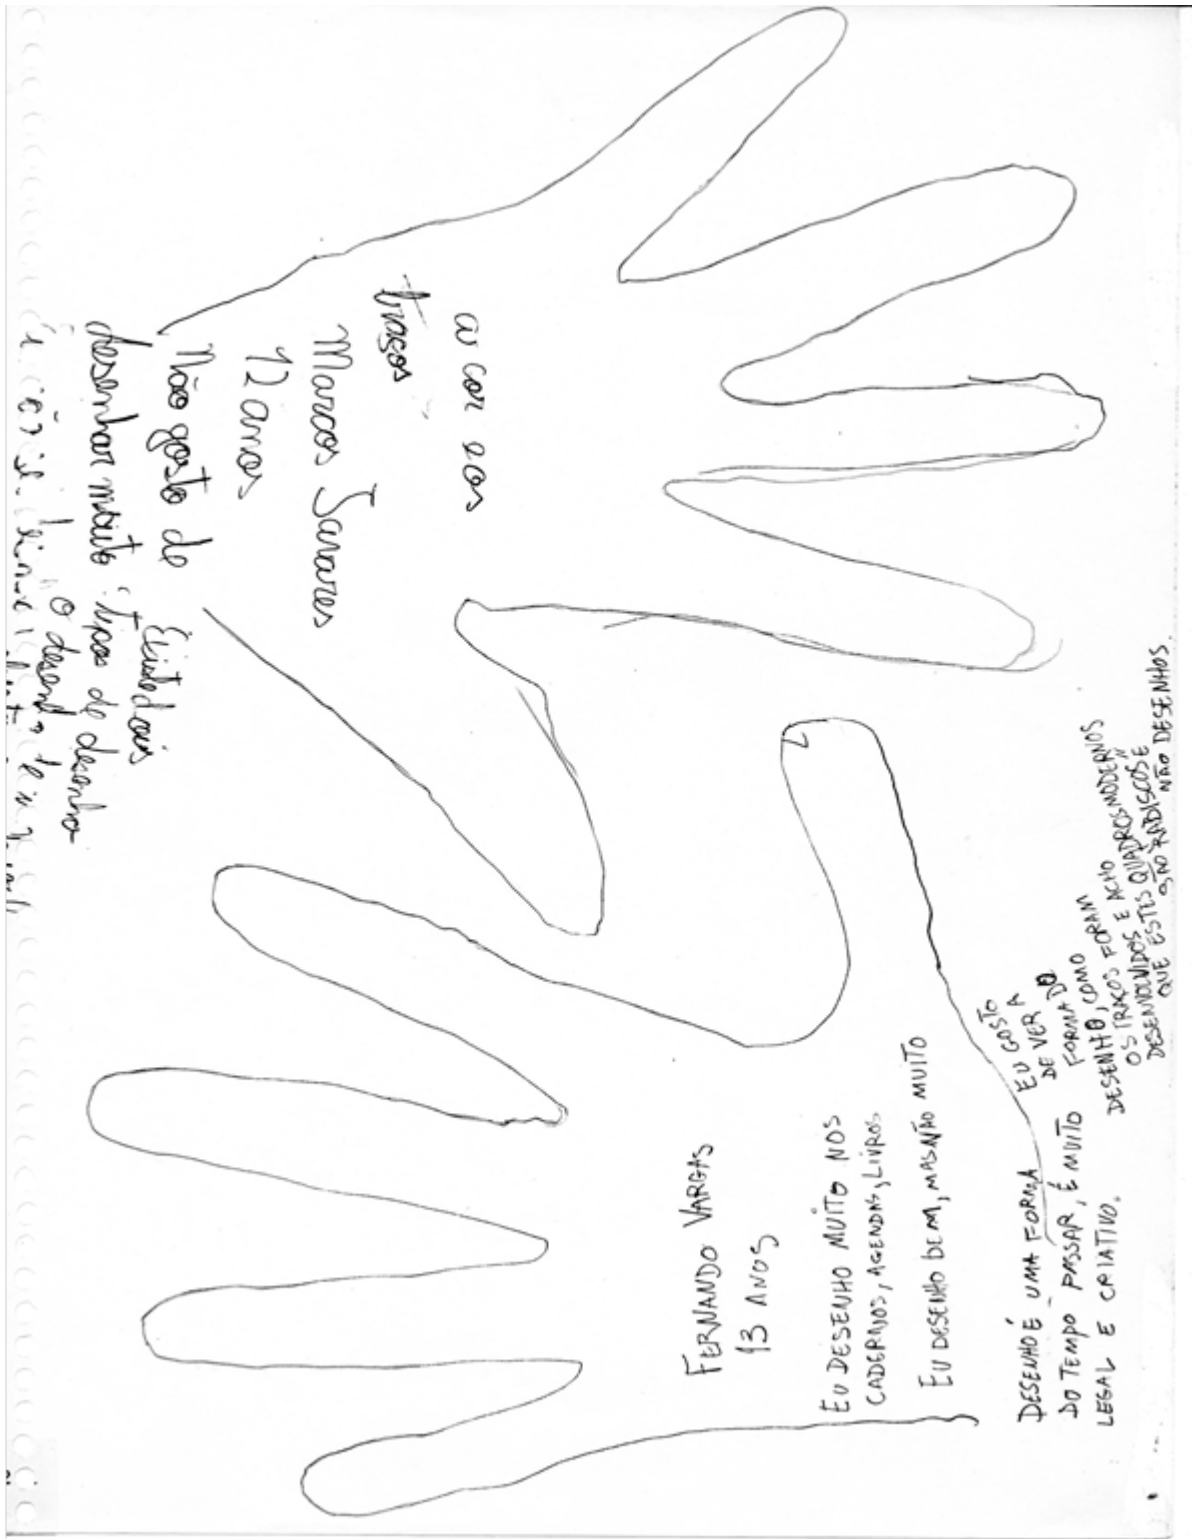 a cor e os
traços
Marcos Tavares
12 anos
Não gosto de
desenhar muito
Existe dois
tipos de desenho
O desenho de
FERNANDO VARGAS
13 ANOS
EU DESENHO MUITO NOS
CADERNOS, AGENDAS, LIVROS
EU DESENHO BEM, MAS NÃO MUITO
DESENHO É UMA FORMA
DO TEMPO PASSAR, É MUITO
LEGAL E CRIATIVO.
EU GOSTO
DE VER A
FORMA DO
DESENHO, COMO
OS TRAÇOS FORAM
DESENVOLVIDOS E ACHO
QUE ESTES QUADROS MODERNOS
SÃO RABISCOS E
NÃO DESENHOS.